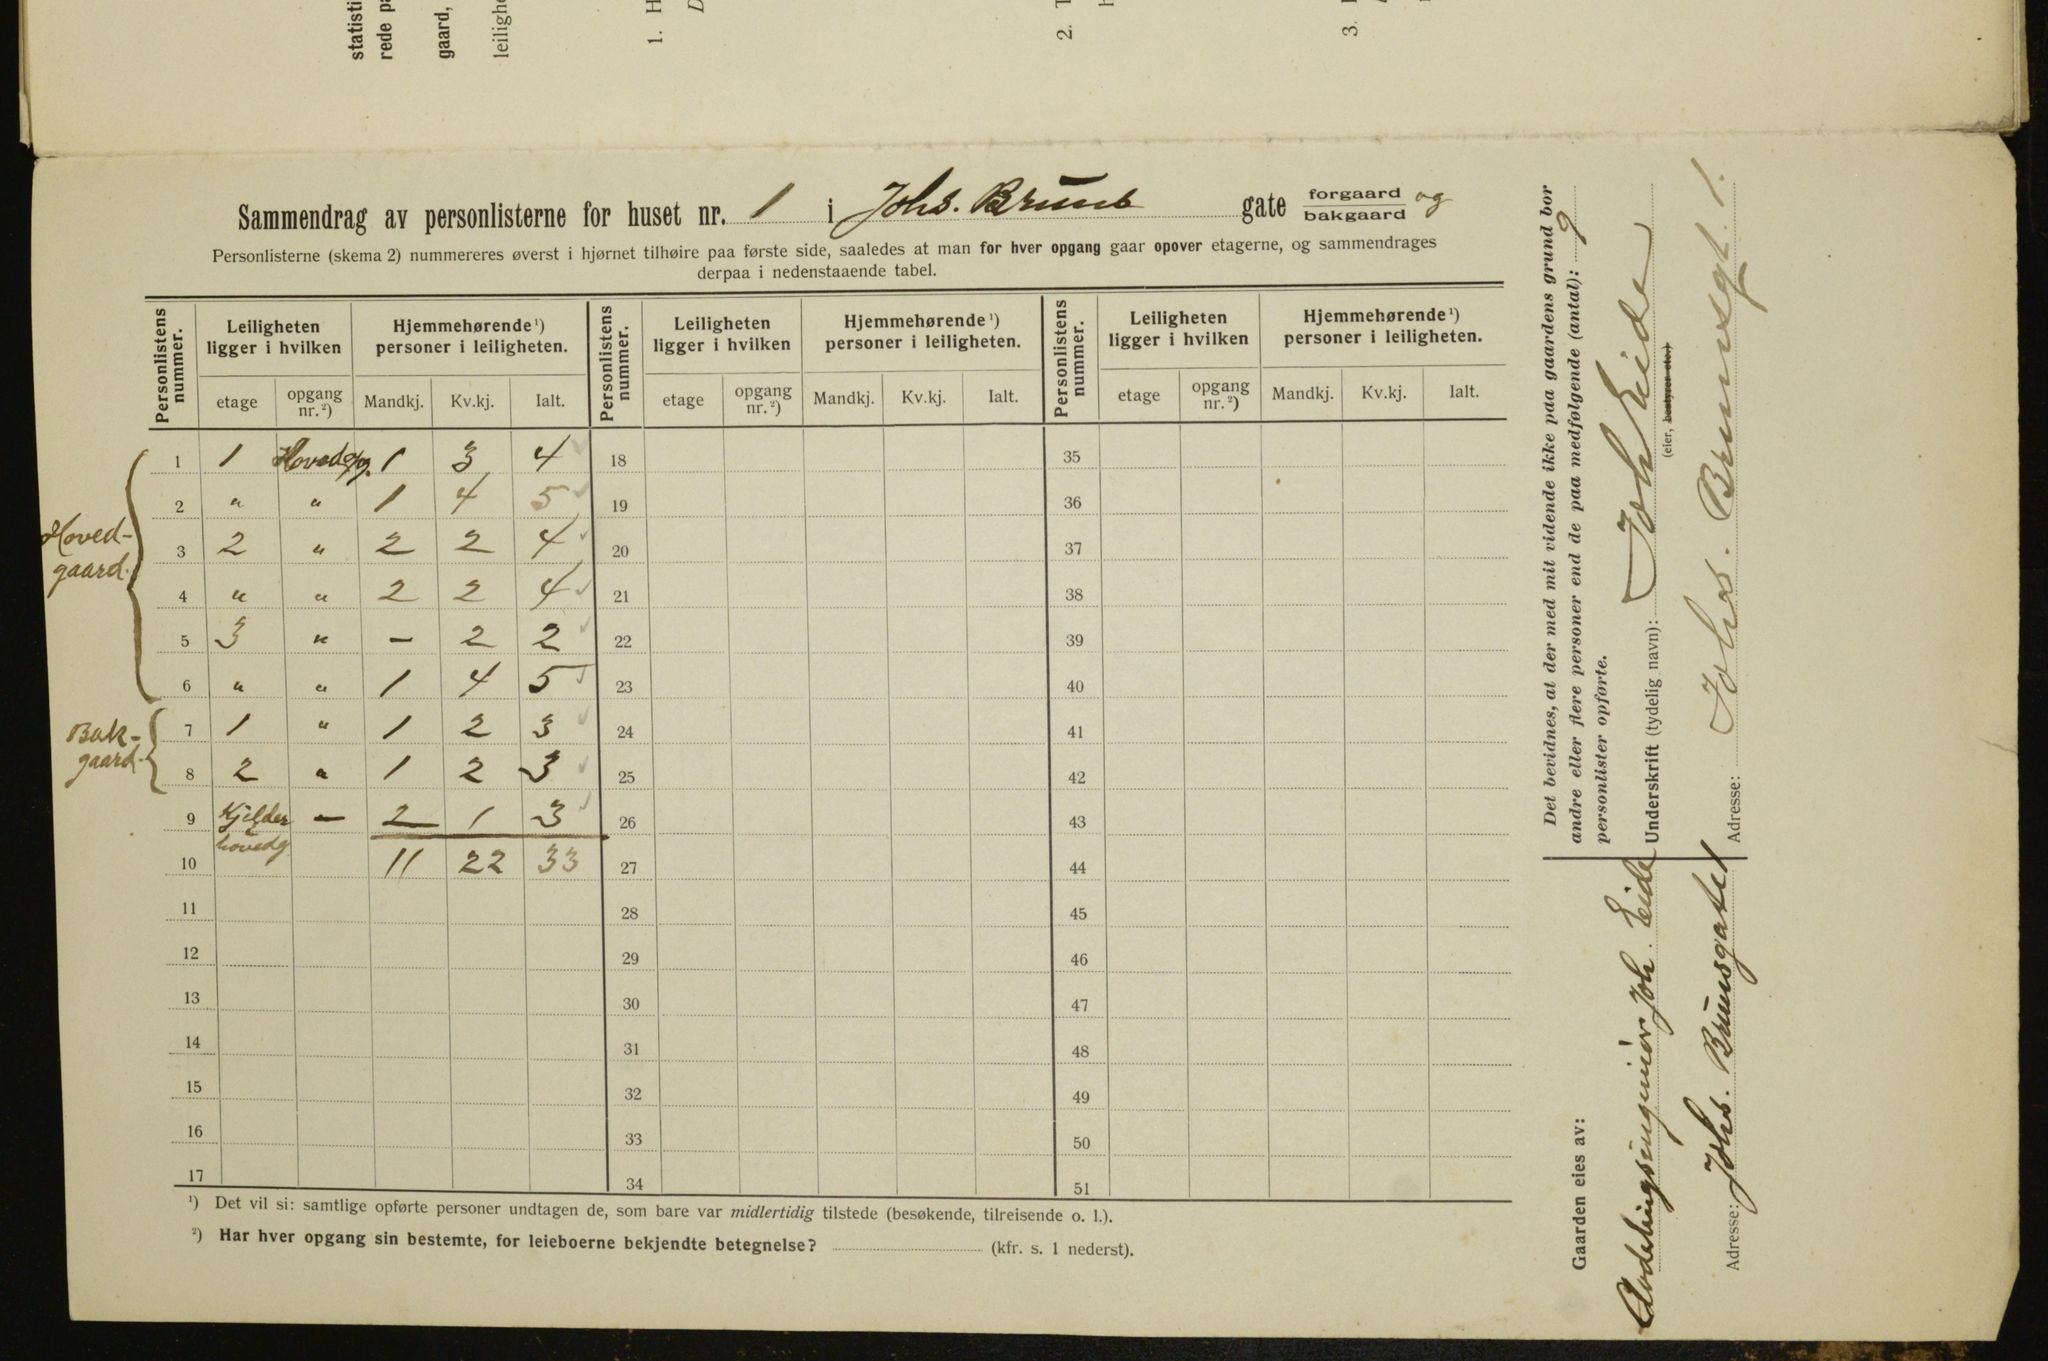 statisti
rede pa
gaard,
leilighe
1. H
D
2. T
h
3.
Sammendrag av personlisterne for huset nr. 1 i Johs. Bruns gate forgaard og bakgaard
Personlisterne (skema 2) nummereres øverst i hjørnet tilhøire paa første side, saaledes at man for hver opgang gaar opover etagerne, og sammendrages
derpaa i nedenstaaende tabel.
Personlistens nummer. | Leiligheten ligger i hvilken | Hjemmehørende ¹) personer i leiligheten. | Personlistens nummer. | Leiligheten ligger i hvilken | Hjemmehørende ¹) personer i leiligheten. | Personlistens nummer. | Leiligheten ligger i hvilken | Hjemmehørende ¹) personer i leiligheten.
etage | opgang nr. ²) | Mandkj. | Kv.kj. | Ialt. | etage | opgang nr. ²) | Mandkj. | Kv.kj. | Ialt. | etage | opgang nr. ²) | Mandkj. | Kv.kj. | Ialt.
Hoved-
gaard.
1 | 1 | Hovedopg. | 1 | 3 | 4 | 18 | 35
2 | " | " | 1 | 4 | 5 | 19 | 36
3 | 2 | " | 2 | 2 | 4 | 20 | 37
4 | " | " | 2 | 2 | 4 | 21 | 38
5 | 3 | " | – | 2 | 2 | 22 | 39
6 | " | " | 1 | 4 | 5 | 23 | 40
Bak-
gaard-
7 | 1 | " | 1 | 2 | 3 | 24 | 41
8 | 2 | " | 1 | 2 | 3 | 25 | 42
9 | Kjelder | – | 2 | 1 | 3 | 26 | 43
hovedg
10 | 11 | 22 | 33 | 27 | 44
11 | 28 | 45
12 | 29 | 46
13 | 30 | 47
14 | 31 | 48
15 | 32 | 49
16 | 33 | 50
17 | 34 | 51
¹) Det vil si: samtlige opførte personer undtagen de, som bare var midlertidig tilstede (besøkende, tilreisende o. l.).
²) Har hver opgang sin bestemte, for leieboerne bekjendte betegnelse? (kfr. s. 1 nederst).
Det bevidnes, at der med mit vidende ikke paa gaardens grund bor
andre eller flere personer end de paa medfølgende (antal): 9
personlister opførte.
Underskrift (tydelig navn): Joh Eide
(eier, bestyrer etc.)
Adresse: Johs. Brunsgt. 1.
Gaarden eies av:
Avdelingsingeniør Joh. Eide
Adresse: Johs. Brunsgate 1